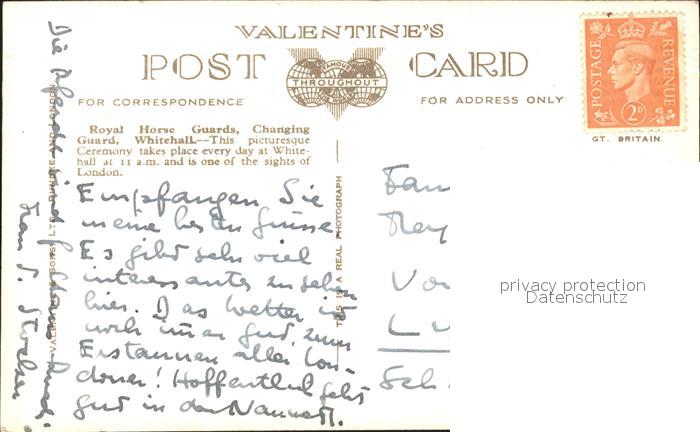 VALENTINE'S
POST CARD
FAMOUS
THROUGHOUT
THE WORLD
FOR CORRESPONDENCE
FOR ADDRESS ONLY
POSTAGE
REVENUE
2D
GT. BRITAIN.
Royal Horse Guards, Changing
Guard, Whitehall.—This picturesque
Ceremony takes place every day at White-
hall at 11 a.m. and is one of the sights of
London.
Empfangen Sie
meine besten Grüsse
Es gibt sehr viel
interessantes zu sehen
hier. Das Wetter ist
auch immer gut, zum
Erstaunen aller Lon-
doner! Hoffentlich geht's
gut in der
Die Pferde sind
THIS IS A REAL PHOTOGRAPH
VALENTINE & SONS LTD., DUNDEE AND LONDON
Fam
Lu
Sch
privacy protection
Datenschutz